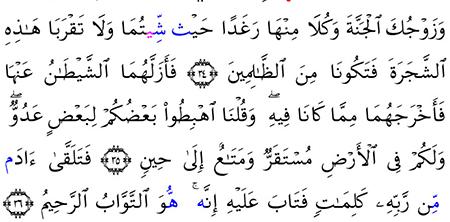 وَزَوْجُكَ ٱلْجَنَّةَ وَكُلَا مِنْهَا رَغَدًا حَيْث شِّيتُمَا وَلَا تَقْرَبَا هَٰذِهِ
ٱلشَّجَرَةَ فَتَكُونَا مِنَ ٱلظَّٰلِمِينَ ﴿٣٤﴾ فَأَزَلَّهُمَا ٱلشَّيْطَٰنُ عَنْهَا
فَأَخْرَجَهُمَا مِمَّا كَانَا فِيهِۖ وَقُلْنَا ٱهْبِطُوا۟ بَعْضُكُمْ لِبَعْضٍ عَدُوٌّۖ
وَلَكُمْ فِى ٱلْأَرْضِ مُسْتَقَرٌّ وَمَتَٰعٌ إِلَىٰ حِينٍ ﴿٣٥﴾ فَتَلَقَّىٰٓ ءَادَم
مِّن رَّبِّهِۦ كَلِمَٰتٍ فَتَابَ عَلَيْهِۚ إِنَّه هُّوَ ٱلتَّوَّابُ ٱلرَّحِيمُ ﴿٣٦﴾